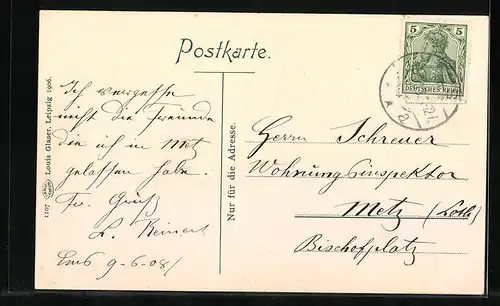 Postkarte.
5 5
DEUTSCHES REICH
Ich vergesse
nicht die Freunde
die ich in Metz
gelassen habe.
Fr. Gruß
L. Reinert
Ems 9-6-08
Herrn Scheuer
Wohnungsinspektor
Metz (Lothr)
Bischofplatz
Nur für die Adresse.
1107 Louis Glaser, Leipzig 1906.